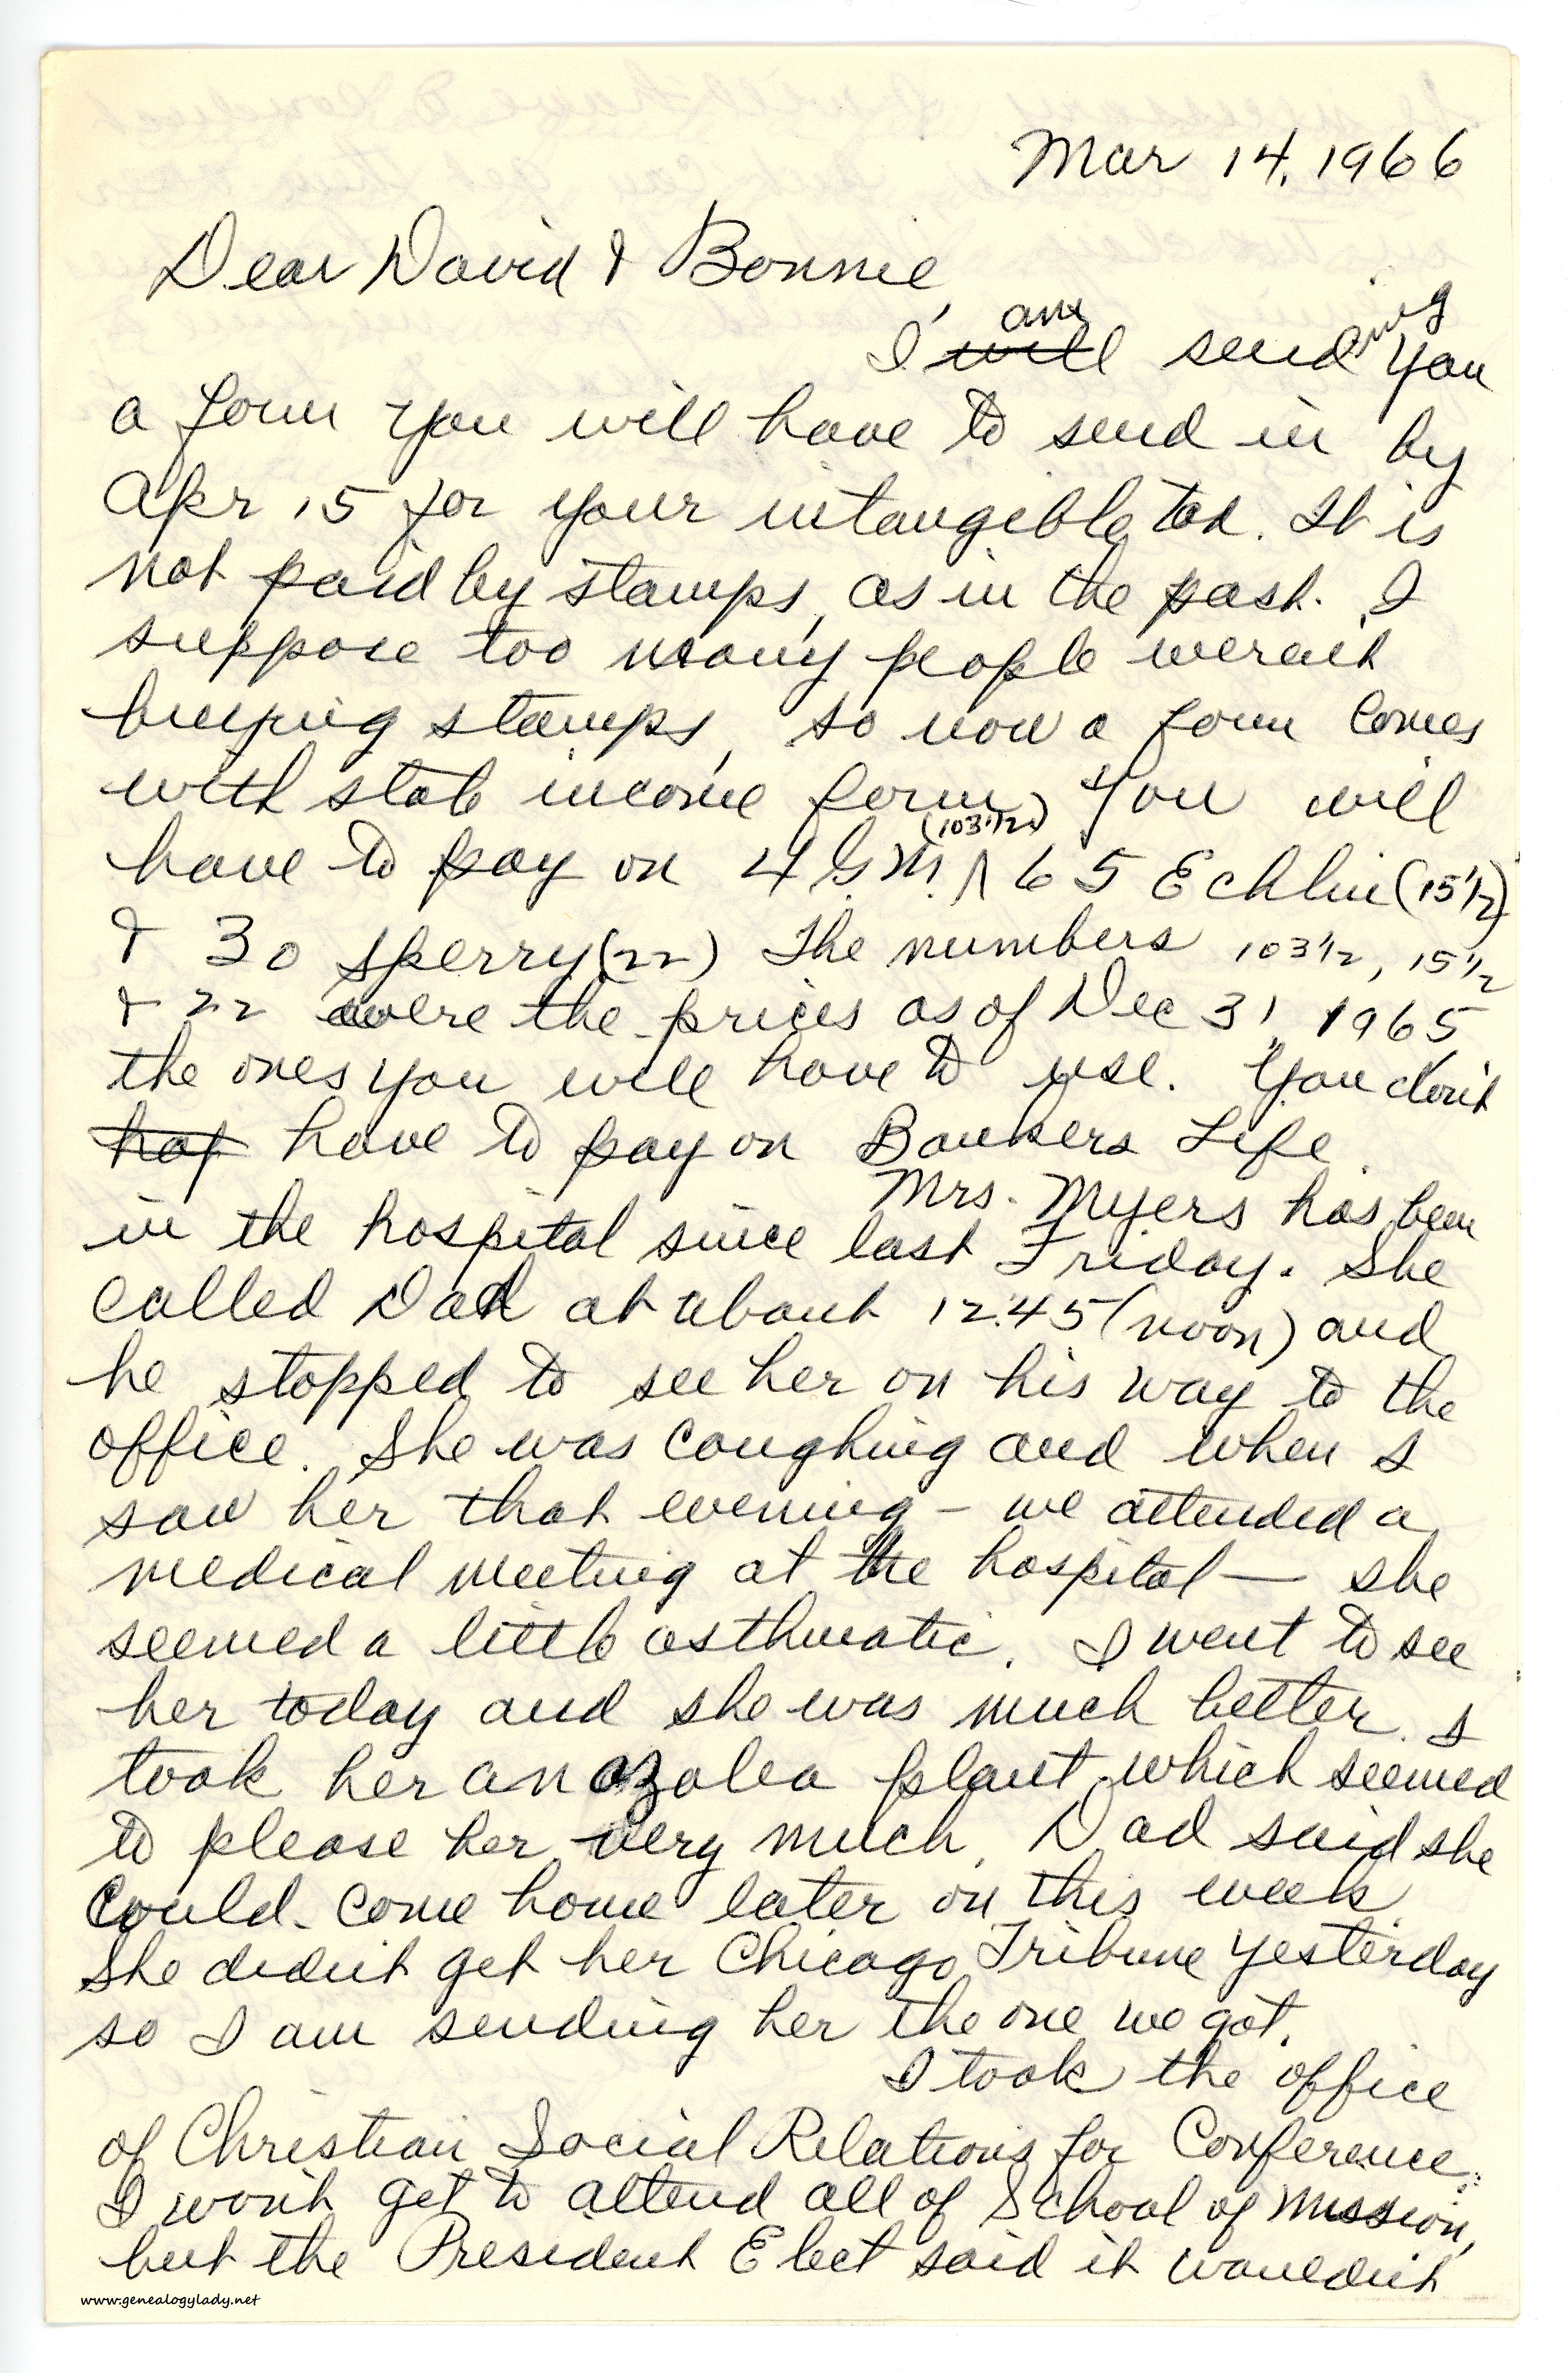 Mar 14, 1966
Dear David & Bonnie,
I will am sending you
a form you will have to send in by
Apr 15 for your intangible tax. It is
not paid by stamps, as in the past. I
suppose too many people weren't
buying stamps, so now a form comes
with state income form. You will
have to pay on 4 G.M. (103 1/2) 65 Echlin (15 1/2)
& 30 Sperry (22) The numbers 103 1/2, 15 1/2
& 22 were the prices as of Dec 31, 1965
the ones you will have to use. You don't
haf have to pay on Bankers Life.
Mrs. Myers has been
in the hospital since last Friday. She
called Dad at about 12:45 (noon) and
he stopped to see her on his way to the
office. She was coughing and when I
saw her that evening – we attended a
medical meeting at the hospital — she
seemed a little asthmatic. I went to see
her today and she was much better. I
took her an azalea plant which seemed
to please her very much. Dad said she
could come home later on this week.
She didn't get her Chicago Tribune yesterday
so I am sending her the one we got.
I took the office
of Christian Social Relations for Conference.
I won't get to attend all of School of Mission,
but the President Elect said it wouldn't
www.genealogylady.net